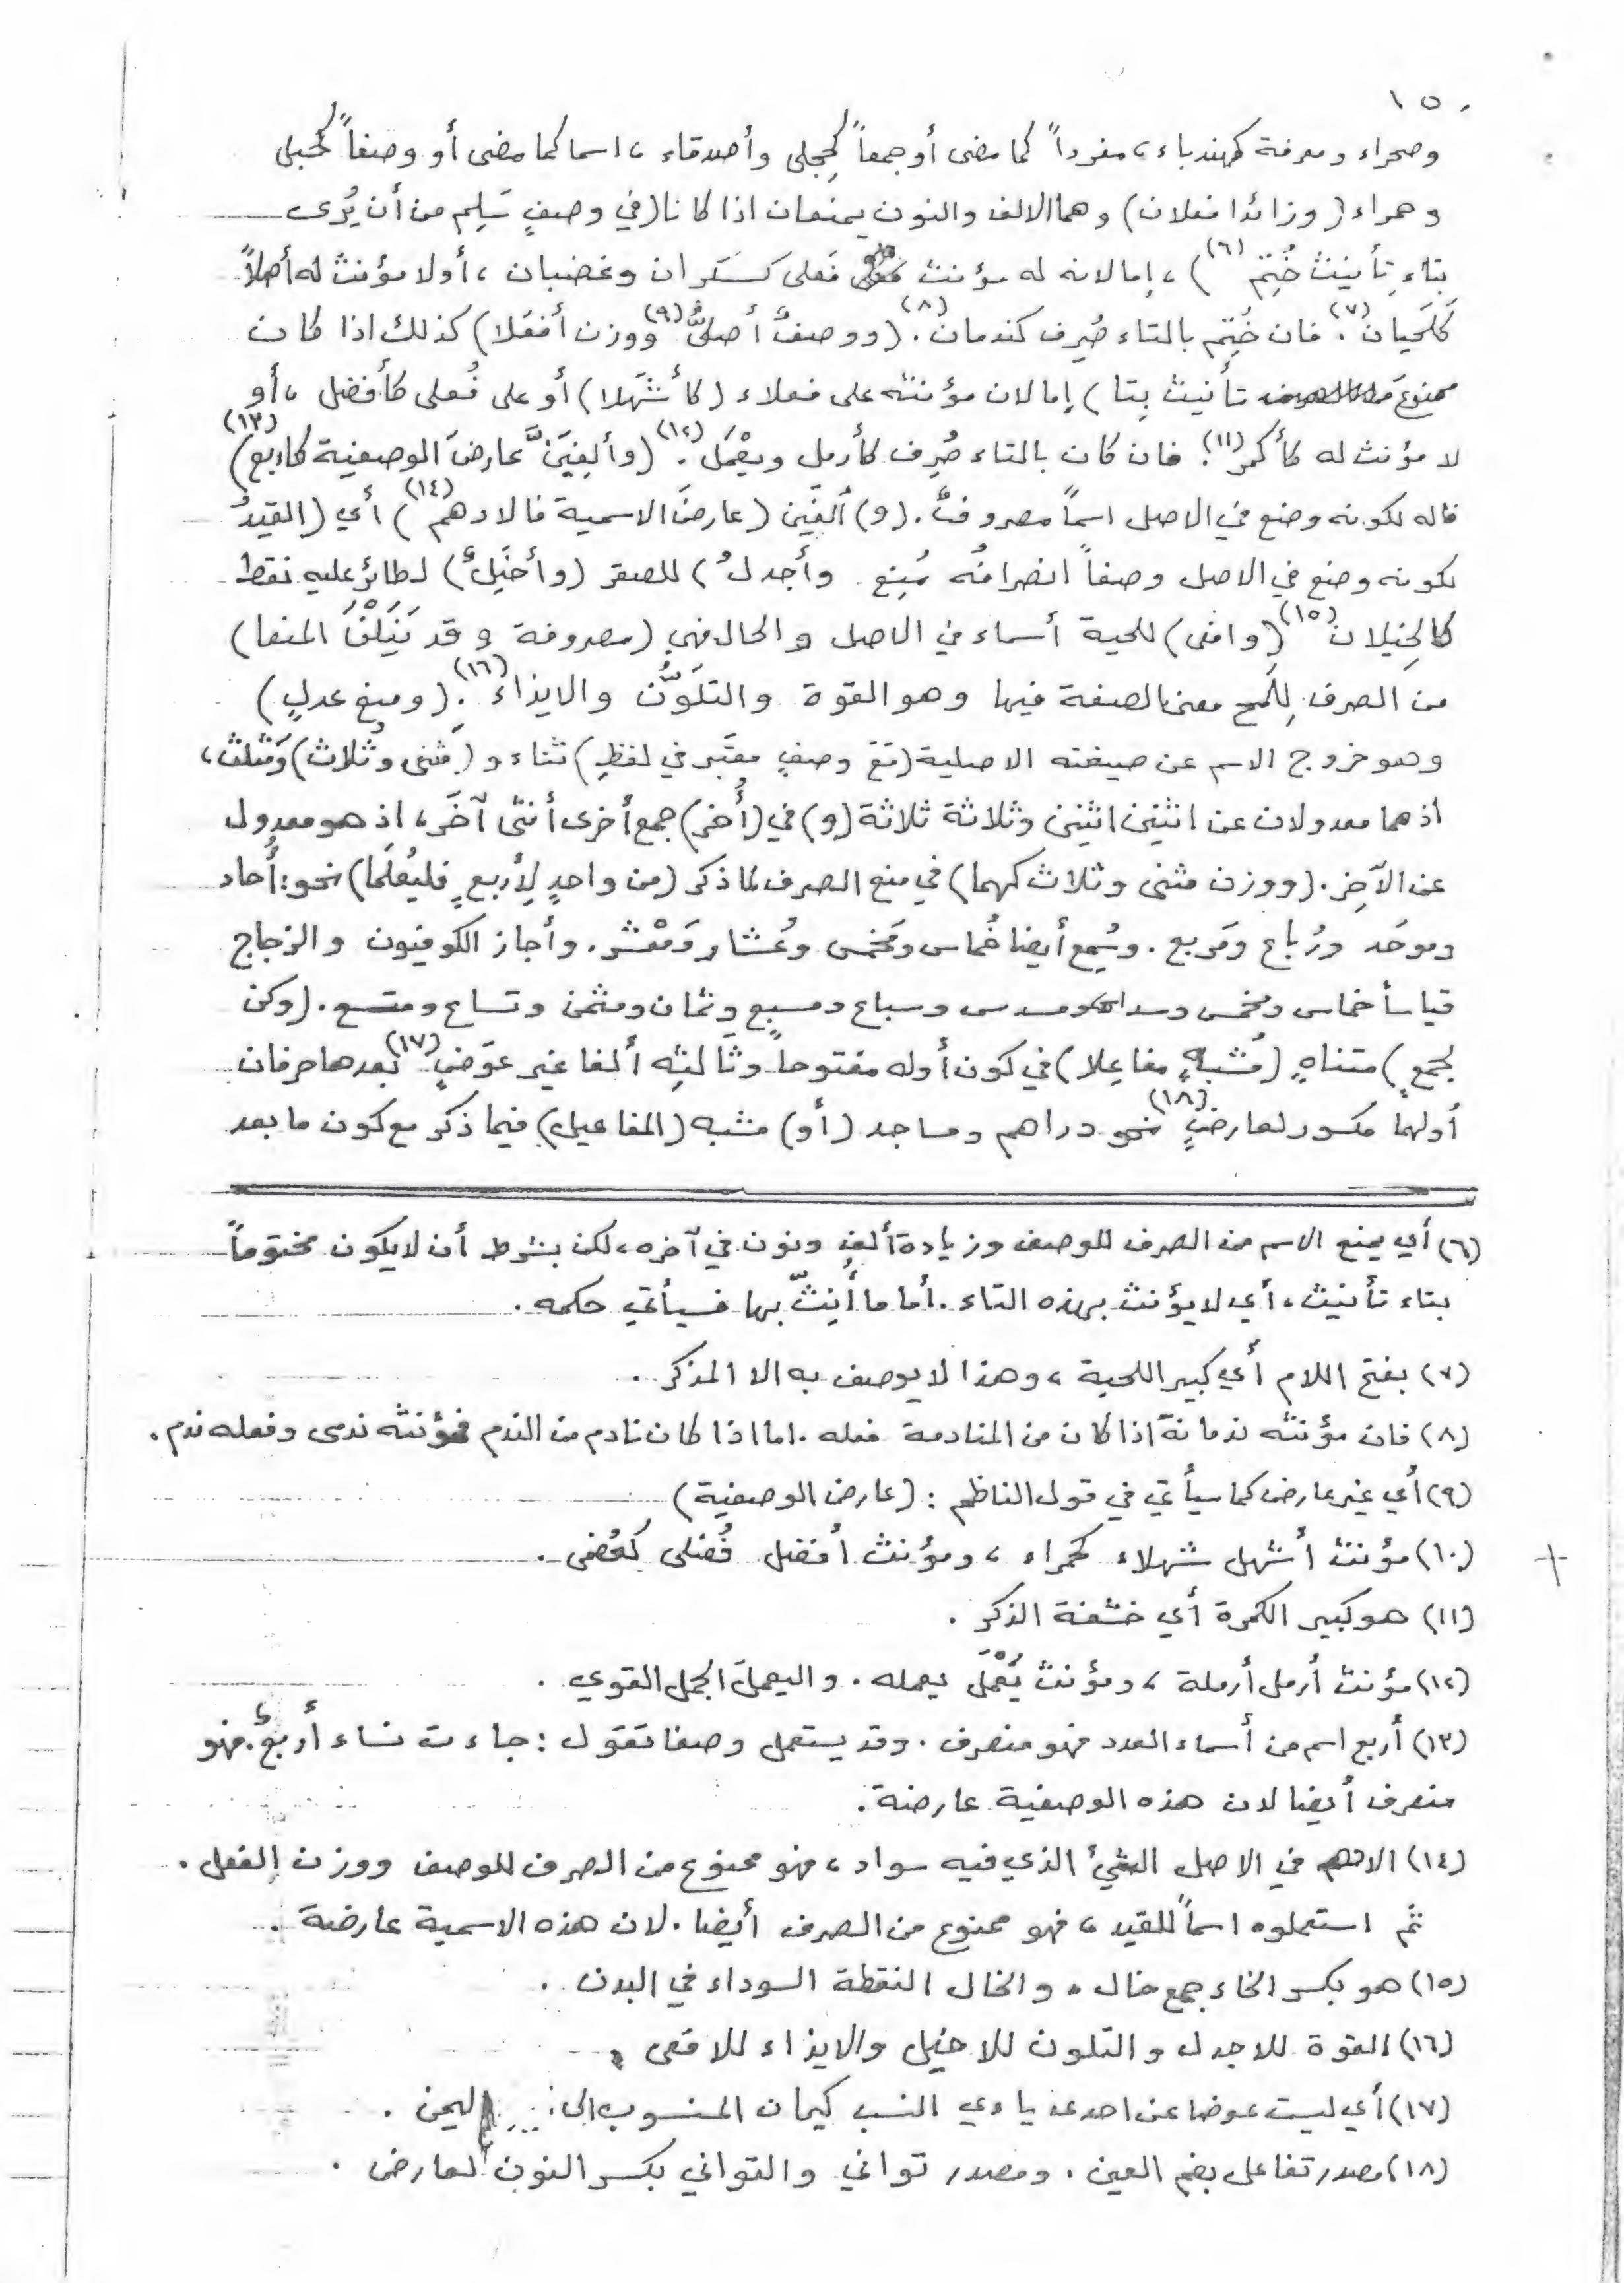 ١٥٠
وصحراء ومعرفة كهندباء، مفرداً كما مضى أو جمعاً كحِجلى وأصدقاء، اسما كما مضى أو وصفاً كحُبلى
وحمراء (وزائدا فعلان) وهما الالف والنون يمنعان اذا كانا (في وصفٍ سَلِم من أن يُرى
بتاءِ تأنيث خُتِم (٦))، إما لانه له مؤنث فَعلى كسَكران وغضبان، أولا مؤنث له أصلاً
كَلَحيان (٧). فان خُتِم بالتاء صُرِف كندمان (٨). (ووصفٌ أصليٌّ (٩) ووزن أفعَلا) كذلك اذا كان
ممنوعَ تأنيث بِتا) إما لان مؤنثه على فعلاء (كأشهَلا) أو على فُعلى كأفضل، أو
لا مؤنث له كأكمر (١١). فان كان بالتاء صُرِف كأرمل ويَعْمَل (١٢). (وألغِيَنَّ عارضَ الوصفية كاربع) (١٣)
فانه لكونه وضع في الاصل اسماً مصروفٌ. (و) ألغِيَن (عارضَ الاسمية فالادهم (١٤)) أي (القيدُ
لكونه وضع في الاصل وصفاً انصرافُه مُنِع وأجدلٌ) للصقر (وأخيَلٌ) لطائر عليه نقط
كالخِيلان (١٥) (وافعى) للحية أسماء في الاصل والحال فهي (مصروفة وقد يَنَلْنَ المنعا)
من الصرف لِلَمح معنى الصفة فيها وهو القوة والتلَوُّن والايذاء (١٦). (ومنع عدلٍ)
وهو خروج الاسم عن صيغته الاصلية (مَعَ وصفٍ معتَبر في لفظِ) ثناء و (مثنى وثُلاث) وَمَثلث،
اذ هما معدولان عن اثنين اثنين وثلاثة ثلاثة (و) في (أُخر) جمع أخرى أنثى آخَر، اذ هو معدول
عن الآخِر. (ووزن مثنى وثلاث كهما) في منع الصرف لما ذكر (من واحدٍ لِأربعٍ فليُعلَما) نحو: أُحاد
وموحَد ورُباع ومَربع. وسُمِع أيضا خُماس ومَخمس وعُشار ومَعْشر. وأجاز الكوفيون والزجاج
قياساً خماس ومخمس وسداس ومسدس وسباع ومسبع وثمان ومثمن وتساع ومتسع. (وكن
لجمعٍ) متناهٍ (مُشبهٍ مفاعِلا) في كون أوله مفتوحاً وثالثِه ألفا غير عوَضٍ (١٧) بعدها حرفان
أولهما مكسور لعارضٍ (١٨) نحو دراهم ومساجد (أو) مشبه (المفاعيل) فيما ذكر مع كون ما بعد
(٦) أي يمنع الاسم من الصرف للوصف وزيادة ألفٍ ونون في آخره، لكن بشرط أن لا يكون مختوماً
بتاء تأنيث، أي لا يؤنث بهذه التاء. أما ما أُنِثّ بها فسيأتي حكمه.
(٧) بفتح اللام أي كبير اللحية، وهذا لا يوصف به الا المذكر.
(٨) فان مؤنثه ندمانة اذا كان من المنادمة فعله. اما اذا كان نادم من الندم فمؤنثه ندمى وفعله ندم.
(٩) أي غير عارض كما سيأتي في قول الناظم: (عارض الوصفية)
(١٠) مؤنث أشهل شهلاء كحمراء، ومؤنث أفضل فُضلى كعُظمى.
(١١) هو كبير الكمرة أي خشفة الذكر.
(١٢) مؤنث أرمل أرملة، ومؤنث يَعْمَل يعمله. واليعمل الجمل القوي.
(١٣) أربع اسم من أسماء العدد فهو منصرف. وقد يستعمل وصفا تقول: جاءت نساء أربعٌ. فهو
منصرف أيضا لان هذه الوصفية عارضة.
(١٤) الادهم في الاصل الشيء الذي فيه سواد، فهو ممنوع من الصرف للوصف ووزن الفعل.
ثم استعملوه اسماً للقيد، فهو ممنوع من الصرف أيضا. لان هذه الاسمية عارضة.
(١٥) هو بكسر الخاء جمع خال. والخال النقطة السوداء في البدن.
(١٦) القوة للاجدل والتلون للاخيل والايذاء للافعى.
(١٧) أي ليست عوضا عن احدى ياءي النسب كيمان المنسوب الى اليمن.
(١٨) مصدر تفاعل بضم العين. ومصدر تواني والتواني بكسر النون لعارض.